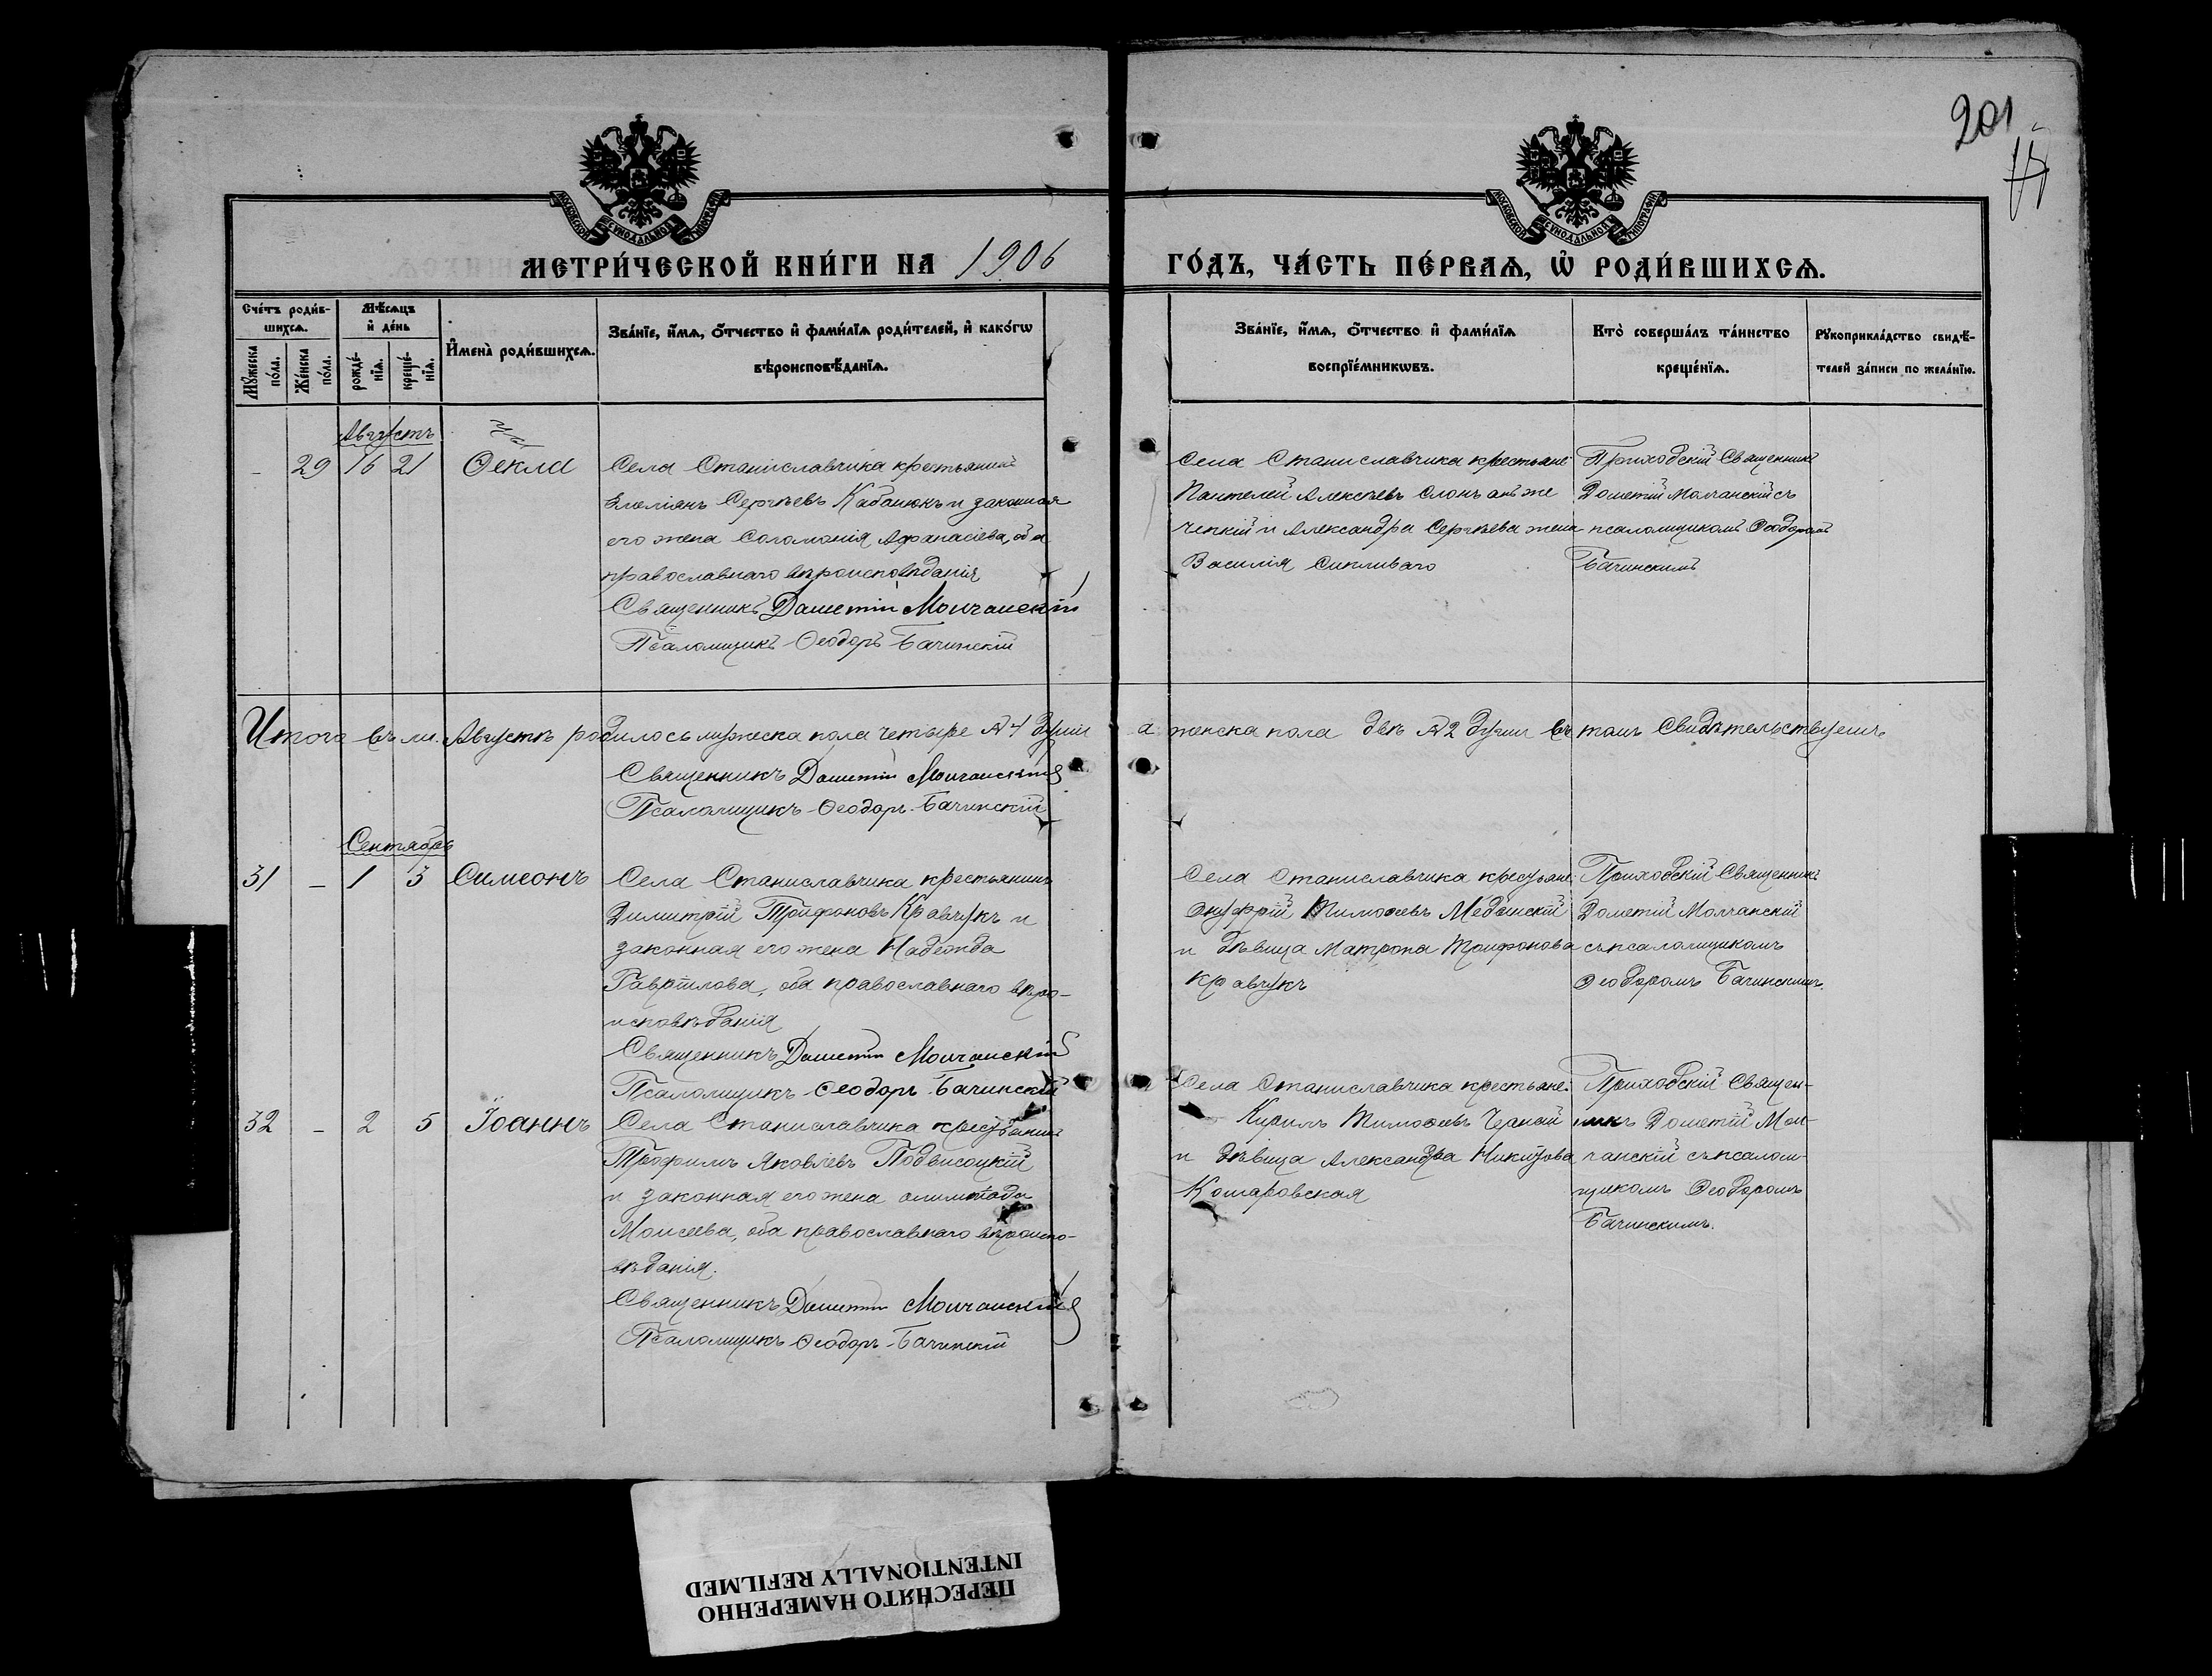 201
МОСКОВСКОЙ СѴНОДАЛЬНОЙ ТИПОГРАФІИ
МОСКОВСКОЙ СѴНОДАЛЬНОЙ ТИПОГРАФІИ
МЕТРИ́ЧЕСКОЙ КНИ́ГИ НА 1906
ГО́ДЪ, ЧА́СТЬ ПЕ́РВАѦ, Ѡ҆ РОДИ́ВШИХСѦ.
Сче́тъ роди́в-
шихсѧ.
Мꙋ́жеска по́ла.
Же́нска по́ла.
Мѣ́сѧцъ
и҆ де́нь
рожде́-
нїѧ.
креще́-
нїѧ.
И҆мена̀ роди́вшихсѧ.
Зва́нїе, и҆́мѧ, ѻ҆́тчество и҆ фами́лїѧ роди́телей, и҆ како́гѡ
вѣроисповѣ́данїѧ.
Зва́нїе, и҆́мѧ, ѻ҆́тчество и҆ фами́лїѧ
воспрїе́мникѡвъ.
Кто̀ соверша́лъ та́инство
креще́нїѧ.
Рꙋкоприкла́дство свидѣ́-
телей за́писи по жела́нїю.
Августъ
– 29 16 21 Ѳекла
Села Станиславчика крестьянинъ
Емеліянъ Сергѣевъ Кабанюкъ и законная
его жена Соломонія Афанасіева, оба
православнаго вѣроисповѣданія
Священникъ Дометій Молчанскій
Псаломщикъ Ѳеодоръ Бачинскій
Села Станиславчика крестьяне
Пантелей Алексѣевъ Слонь
и Александра Сергѣева жена
Василія Сипливаго
Приходскій Священникъ
Дометій Молчанскій съ
псаломщикомъ Ѳеодоромъ
Бачинскимъ
Итого въ м. Августѣ родилось мужеска пола четыре № 4 души а женска пола двѣ № 2 души въ томъ Свидѣтельствуемъ
Священникъ Дометій Молчанскій
Псаломщикъ Ѳеодоръ Бачинскій
Сентябрь
31 – 1 3 Симеонъ
Села Станиславчика крестьянинъ
Димитрій Трифоновъ Кравчукъ и
законная его жена Надежда
Гавріилова, оба православнаго вѣро-
исповѣданія
Священникъ Дометій Молчанскій
Псаломщикъ Ѳеодоръ Бачинскій
Села Станиславчика крестьяне:
Онуфрій Тимоѳеевъ Мединскій
и дѣвица Матрона Трифонова
Кравчукъ
Приходскій Священникъ
Дометій Молчанскій
съ псаломщикомъ
Ѳеодоромъ Бачинскимъ.
32 – 2 5 Іоаннъ
Села Станиславчика крестьянинъ
Трофимъ Яковлевъ Подвисоцкій
и законная его жена Олимпіада
Моисеева, оба православнаго вѣроиспо-
вѣданія.
Священникъ Дометій Молчанскій
Псаломщикъ Ѳеодоръ Бачинскій
Села Станиславчика крестьяне:
Курилъ Тимоѳеевъ Черный
и дѣвица Александра Никитова
Комаровская
Приходскій Священ-
никъ Дометій Мол-
чанскій съ псалом-
щикомъ Ѳеодоромъ
Бачинскимъ.
ПЕРЕСНЯТО НАМЕРЕННО
INTENTIONALLY REFILMED